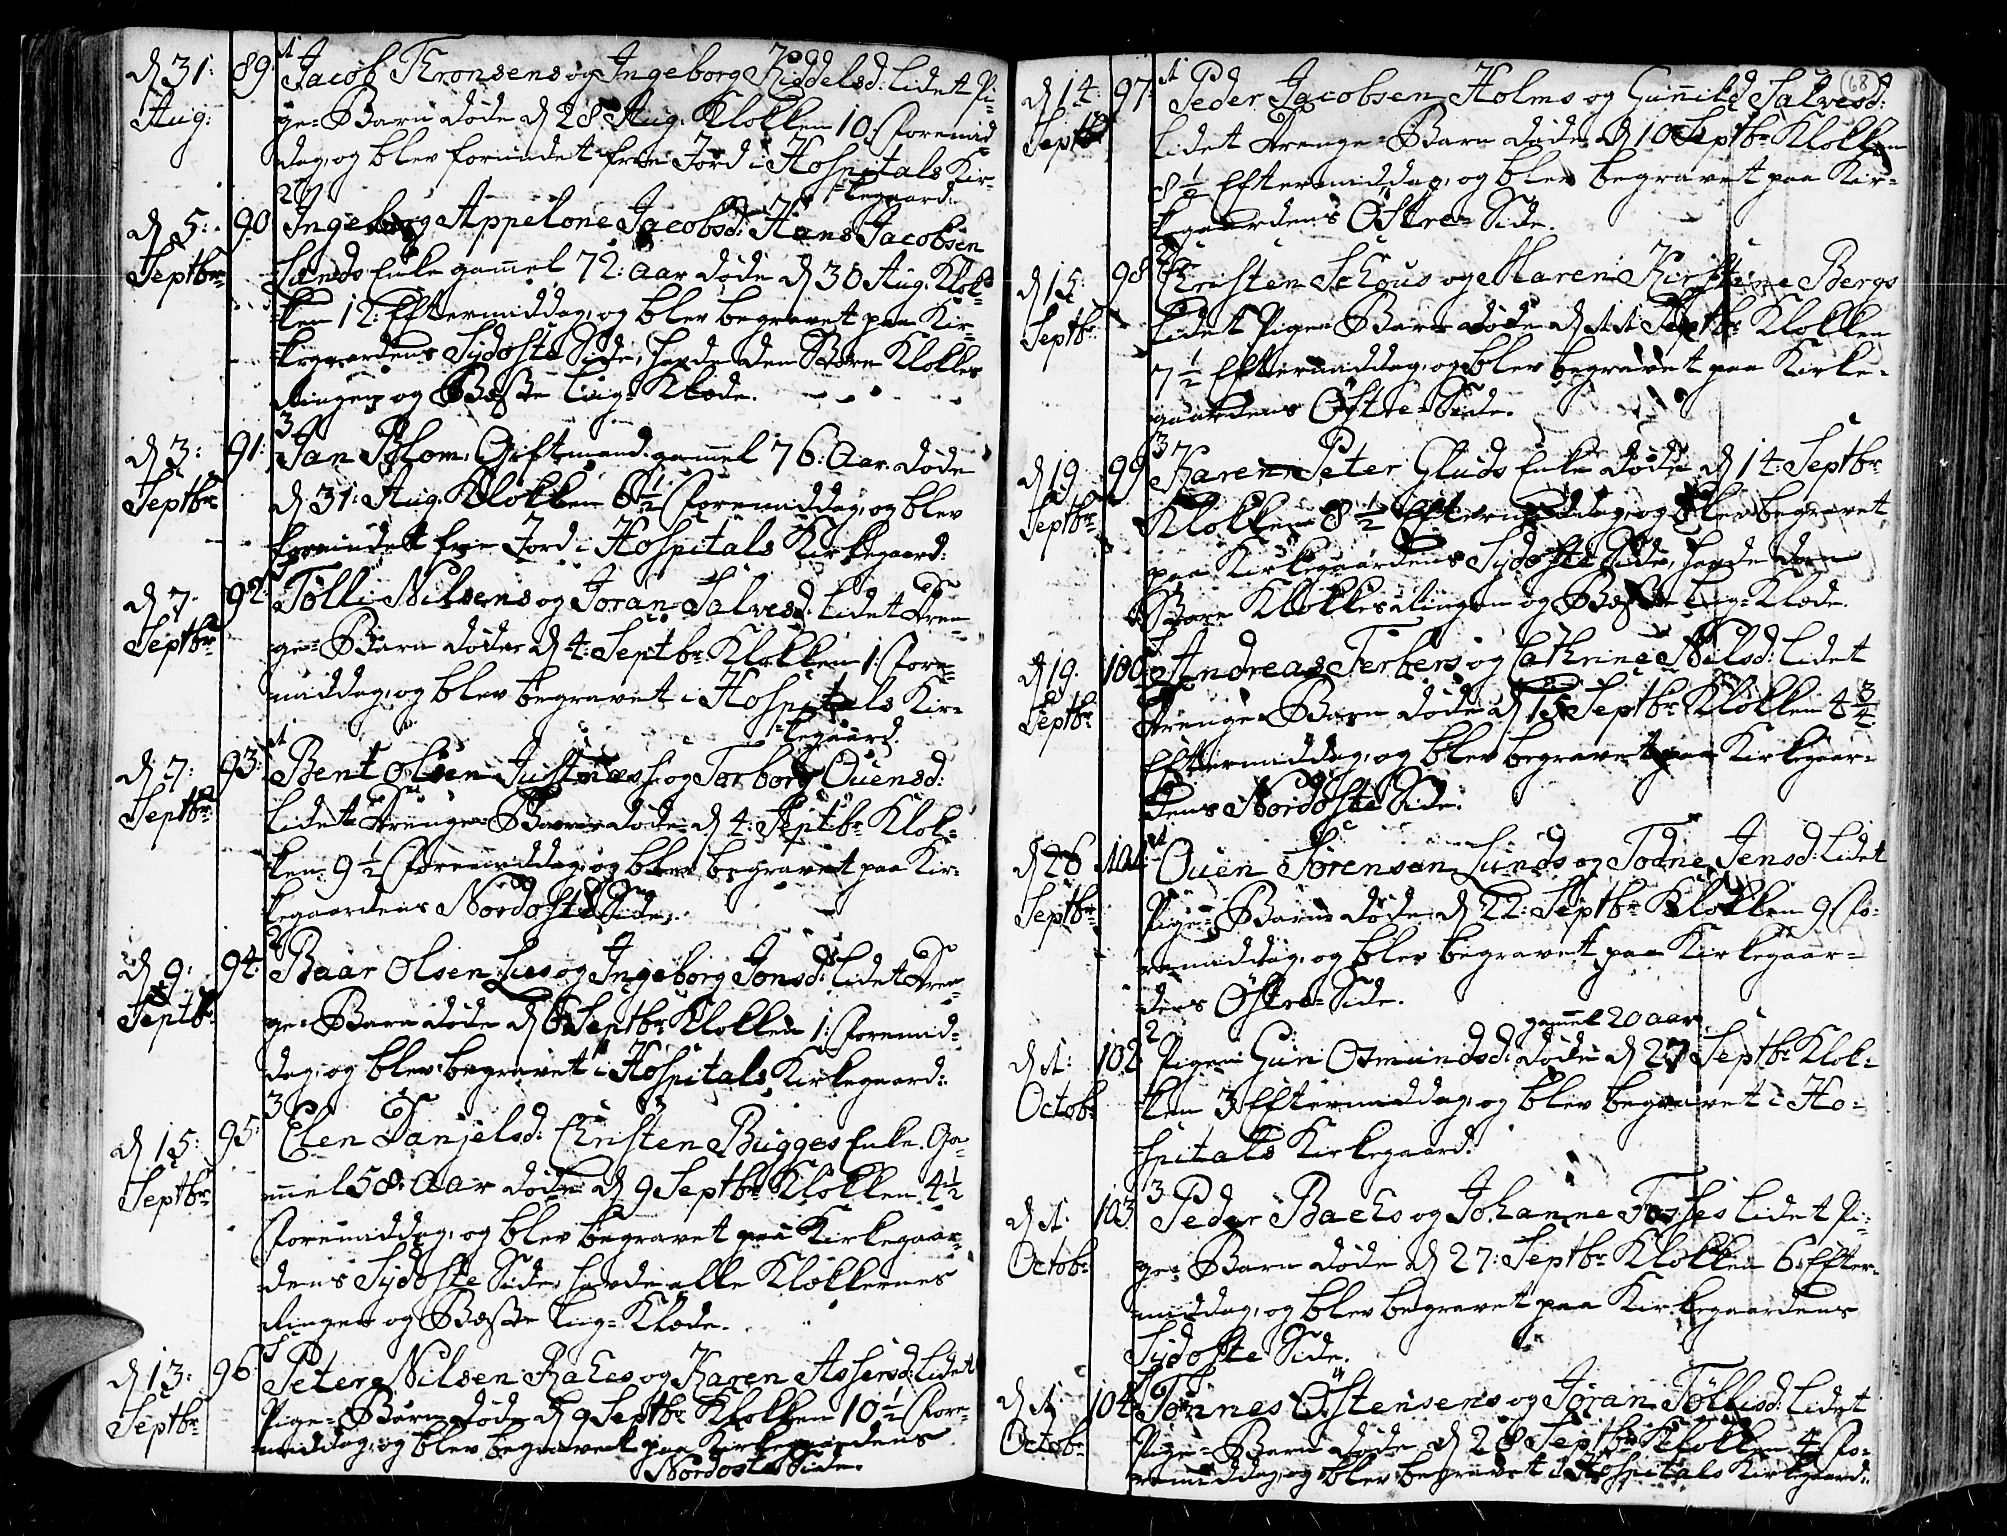 d 31: Aug: 89. 1 Jacob Tronsens og Ingeborg Kiddelsd: lidet Pi-
ge-Barn døde d 28 Aug. Klokken 10: Formid-
dag, og blev forundet frie Jord i Hospitals Kir-
kegaard.
d 5: Septbr 90 2 Ingeborg Appelone Jacobsd: Hans Jacobsen
Lunds Enke gamel 72: Aar døde d 30 Aug. Klok-
ken 12: Eftermiddag, og blev begravet paa Kir-
kegaardens Sydoste Side, havde den Store Klokkes
Ringen og Beste Liig-Klæde.
d 3: Septbr 91: 3 Jan Blom, Giftmand gamel 76: Aar døde
d 31: Aug. Klokken 6½ Formiddag, og blev
forundet frie Jord i Hospitals Kirkegaard:
d 7: Septbr 92: Tølli Nilsens og Joran Salvesd: lidet Dren-
ge-Barn døde d 4: Septbr Klokken 1: Fore-
middag, og blev begravet i Hospitals Kir-
kegaard.
d 7: Septbr 93: 1 Bent Olsen Justnæs og Torborg Ouensd:
lidet Drenge-Barn døde d 4: Septbr Klok-
ken 9½ Formiddag, og blev begravet paa Kir-
kegaardens Nordoste Side.
d 9: Septbr 94: 2 Baar Olsen Lies og Ingeborg Jonsd: lidet Dren-
ge-Barn døde d 6 Septbr Klokken 1: Formid-
dag, og blev begravet i Hospitals Kirkegaard:
d 15: Septbr 95: 3 Elen Danjelsd: Christen Bugges Enke. Ga-
mel 58: Aar døde d 9 Septbr Klokken 4½
Formiddag, og blev begravet paa Kirkegaar-
dens Sydoste Side, havde alle Klokkernes
Ringen og Beste Liig-Klæde.
d 13: Septbr 96 Peter Nilsen og Karen Assersd: lidet
Pige-Barn døde d 9 Septbr Klokken 10½ Fore-
middag, og blev begravet paa Kirkegaardens
Nordoste Side.
68
d 14: Septbr 97: 1 Peder Jacobsen Holms og Gunild Salvesd:
lidet Drenge-Barn døde d 10 Septbr Klokken
8½ Eftermiddag, og blev begravet paa Kir-
kegaardens Østre-Side.
d 15: Septbr 98 2 Christen Schous og Maren Kirstine Bergs
lidet Pige-Barn døde d 11 Septbr Klokken
7½ Eftermiddag, og blev begravet paa Kirke-
gaardens Østre-Side.
d 19 Septbr 99 3 Karen Peter Gluds Enke døde d 14: Septbr
Klokken 8½ Eftermiddag, og blev begravet
paa Kirkegaardens Sydoste Side, havde den
Store Klokkes Ringen og Beste Liig-Klæde.
d 19. Septbr 100: Andreas Ferbers og Cathrine Nilsd: lidet
Drenge-Barn døde d 15 Septbr Klokken 4¾
Eftermiddag, og blev begravet paa Kirkegaar-
dens Nordoste Side:
d 26 Septbr 101: 1 Ouen Sørensen Lunds og Todne Jensd: lidet
Pige-Barn døde d 22: Septbr Klokken 9 Fo-
remiddag, og blev begravet paa Kirkegaar-
dens Østre-Side.
gamel 20 aar
d 1: Octobr 102 2 Pigen Gun Osmundsd: døde d 27 Septbr Klok-
ken 3 Eftermiddag, og blev begravet i Ho-
spitals Kirkegaard.
d 1: Octobr 103 3 Peder Bachs og Johanne lidet Pi-
ge-Barn døde d 27: Septbr Klokken 6 Efter-
middag, og blev begravet paa Kirkegaardens
Sydoste Side.
d 1: Octobr 104 Tønnes Østensens og Joran Tøllisd: lidet
Pige-Barn døde d 28 Septbr Klokken 4 Fo-
remiddag, og blev begravet i Hospitals Kirkegaard: